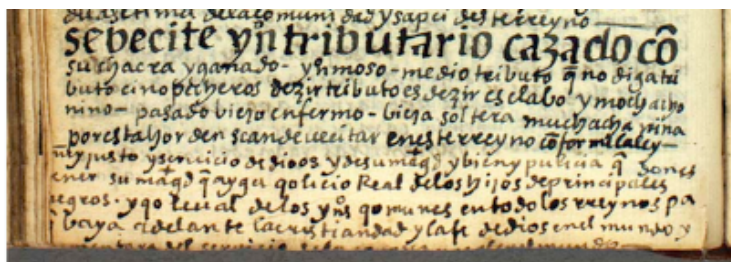 dua setima dela comunidad y sapci deste rreyno
se becite yn̄ tributario cazado cō
su chacra y ganado - yn̄ moso - medio tributo q̄ no diga tri
buto cino pecheros dezir tributo es dezir esclabo y mochacho
nino - pasado biejo enfermo - bieja soltera muchacha niña
por esta horden se an de vecitar en este rreyno cōforme la ley
muy justo y servicio de dios y de su maḡd y bien y pulicia q̄
ener su maḡd q̄ ayga qolicio Real de los hijos de principales
negros - y qo leual de los yn̄s qomunes en todo los rreynos pa
baya adelante la cristiandad y la fe de dios en el mundo y